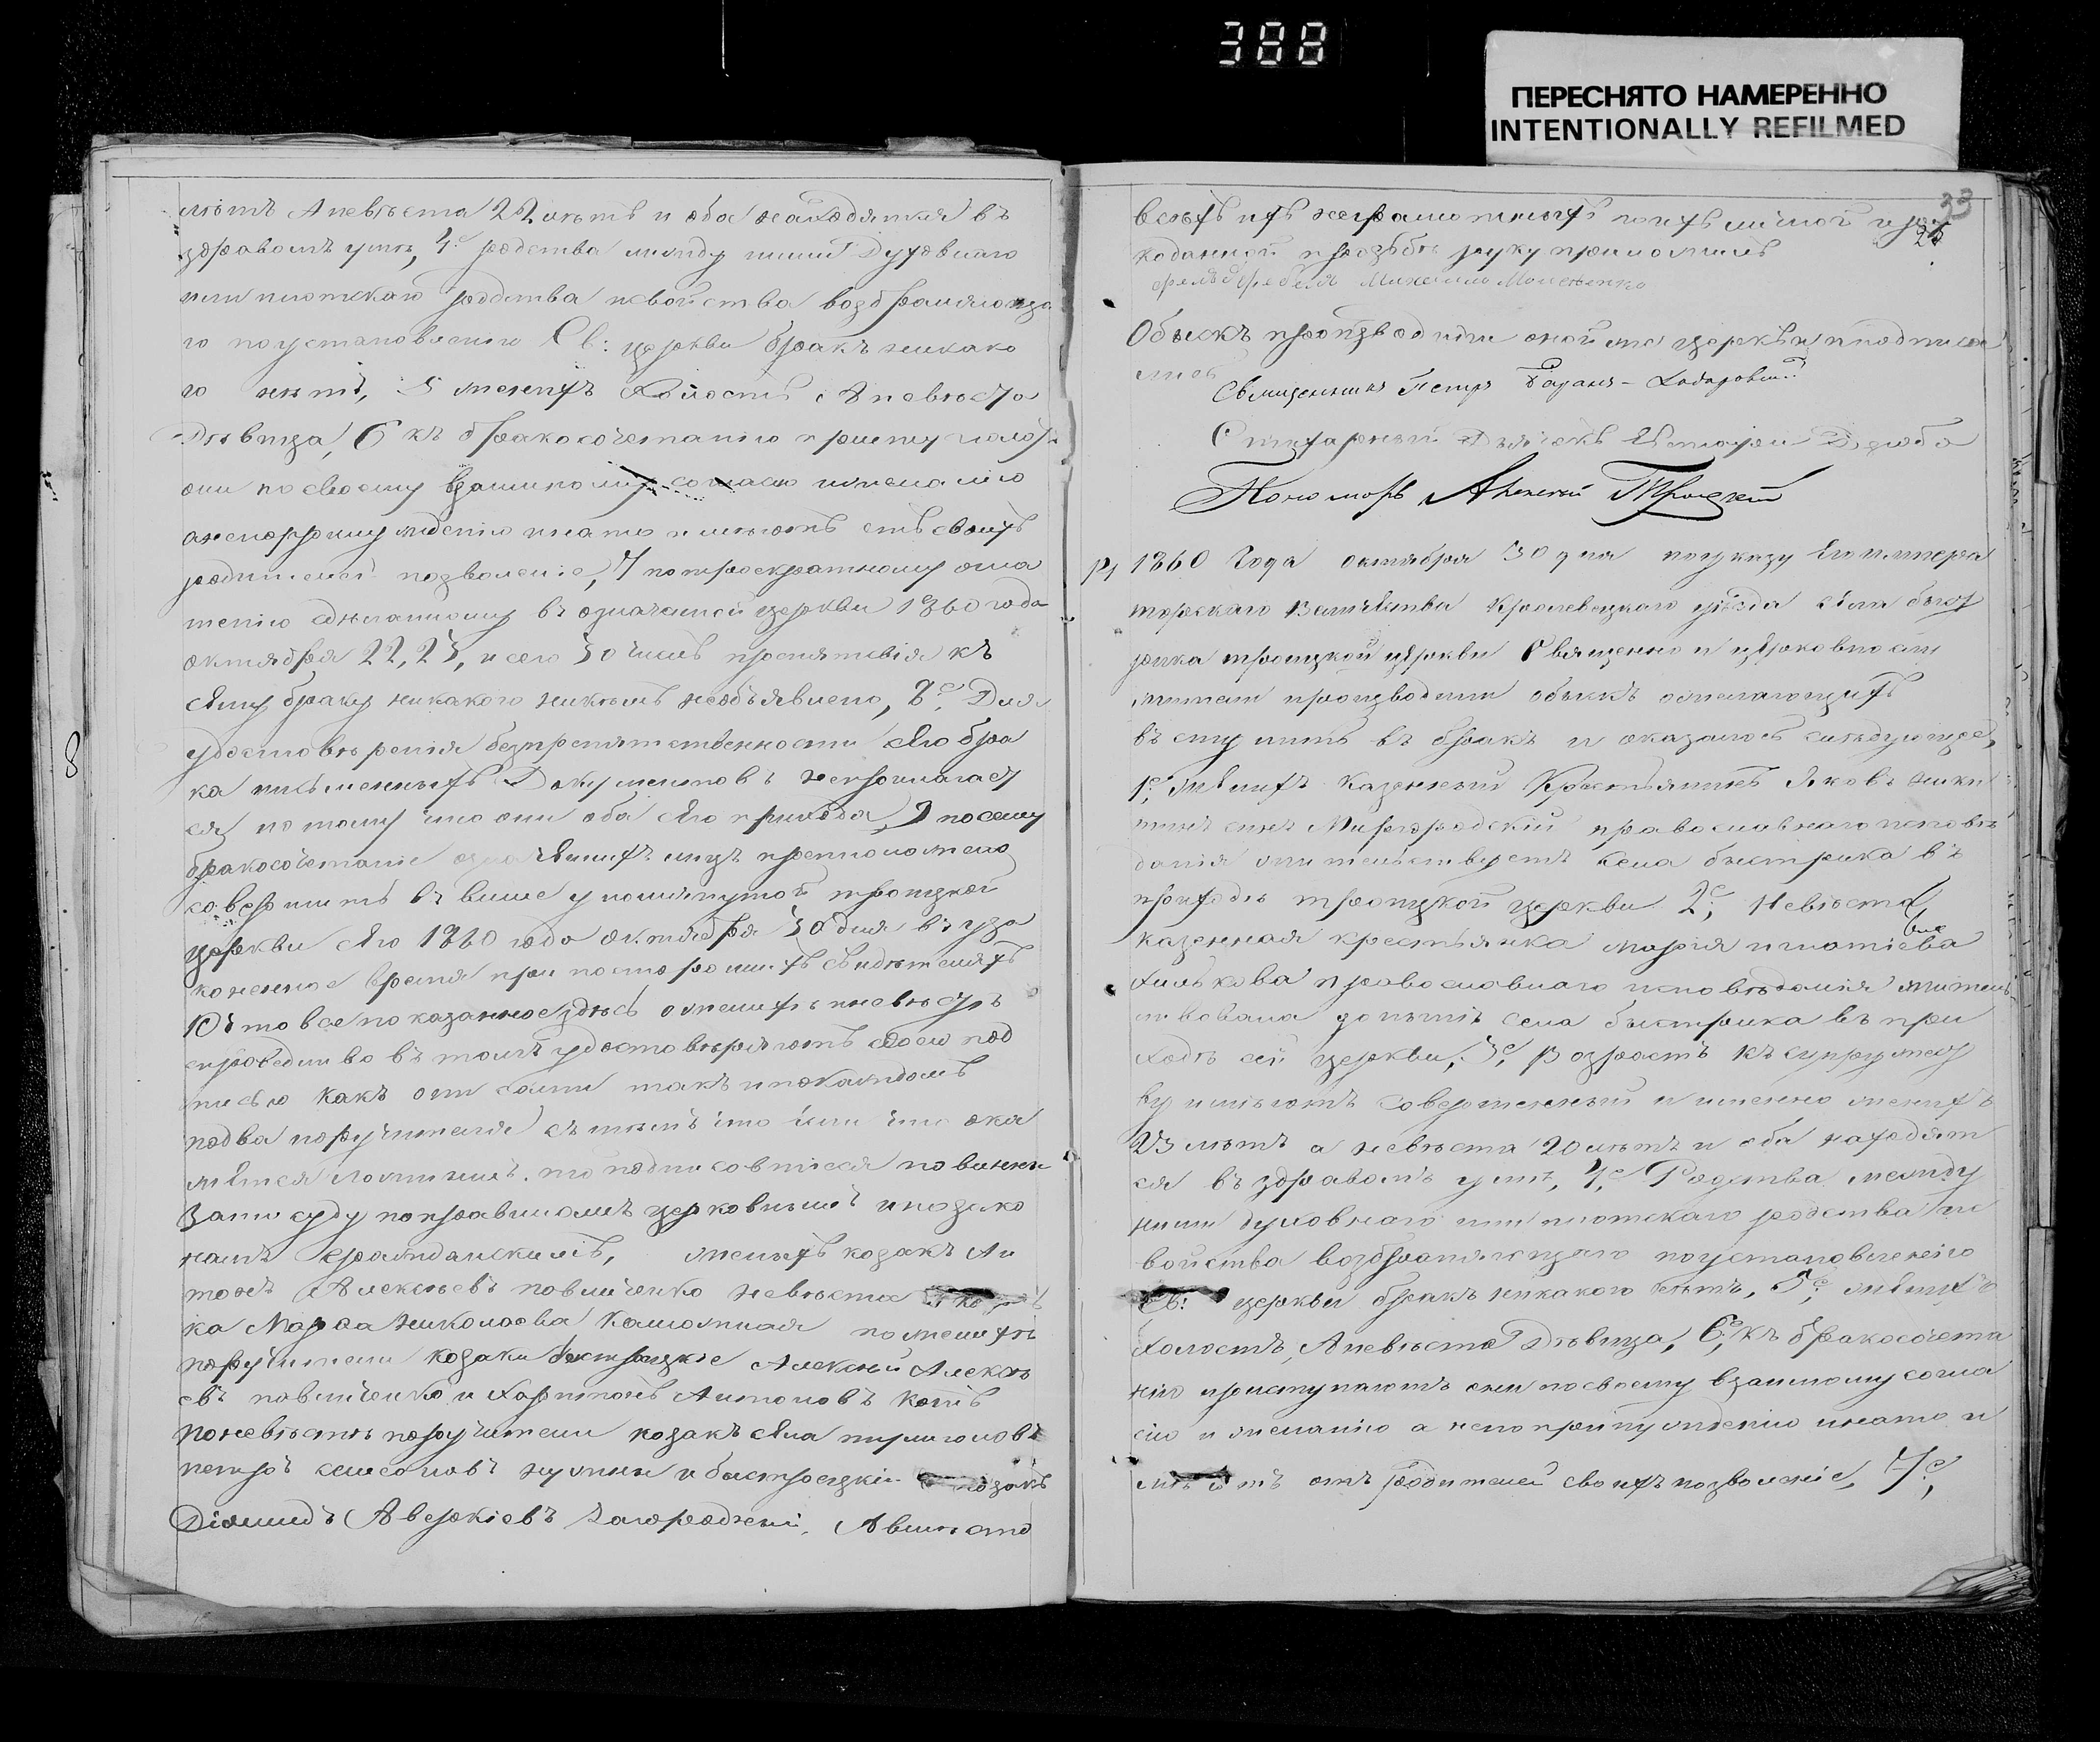 388
ПЕРЕСНЯТО НАМЕРЕННО
INTENTIONALLY REFILMED
лѣтъ Аневѣста 22 лѣтъ и оба находятся въ
здравомъ умѣ, 4е родства между ними Духовнаго
или плотскаго родства исвойства возбраняюща
го поустановленію Св: церкви бракъ никако
го нѣтъ, 5 женихъ Холостъ Аневѣста
Дѣвица, 6 къ бракосочетанію приступаютъ
они посвоему взаимному согласію ижеланію
анепопринужденію инато имѣютъ отъ своихъ
родителей позволеніе, 7 потроекратному огла
шенію сдѣланному въ означеной церкви 1860 года
октября 22, 23, и сего 30 числъ препятствія къ
сему браку никакого никѣмъ необъявлено, 8е Для
удостовѣренія безпрепятственности сего бра
ка письменныхъ Документовъ неприлагает
ся потому что они оба сего прихода, 9 посему
бракосочетаніе означеныхъ лицъ предположено
совершить въ выше упомянутой троицкой
церкви сего 1860 года октября 30 дня въ уза
коненное время при постороннихъ свидѣтеляхъ
10 что все показанное здѣсь оженихѣ иневѣстѣ
справедливо въ томъ удостовѣряютъ своею под
писью какъ они сами такъ ипокаждомъ
подва поручителя съ тѣмъ что если что ока
жется ложнымъ. то подписавшіеся повинны
зато суду поправиламъ церковнымъ ипозако
намъ гражданскимъ, женихъ козакъ Ан
тонъ Алексѣевъ Павличенко невѣста
ка Марфа Николаева по женихѣ
поручители козаки Быстрицкіе Алексѣй Алексѣ
евъ Павличенко и Харитонъ Антоновъ Котъ
поневѣстѣ поручители козакъ села
петръ самсоновъ и быстрецкій козакъ
Діомидъ Аверкіевъ Загородній, Авмѣсто
8
33
25
всѣхъ ихъ неграмотныхъ поихъ личной иру
коданной прозьбѣ руку приложилъ
Михаилъ
Обыскъ производили оной же церкви иподписа
лись
Священникъ Петръ
Дьячекъ
Пономарь Алексѣй Троцкій
1860 Года октября 30 дня поуказу Его императ
торскаго Величества Кролевецкаго уѣзда села быст
рика троицкой церкви Священно и церковносл
жители производили обыскъ ожелающихъ
въступить въ бракъ и оказалось слѣдующее,
1е, Женихъ казенный Крестьянинъ Яковъ Ники
тинъ сынъ Миргородскій православнаго исповѣ
данія жительствуетъ села быстрика въ
приходѣ троицкой церкви 2е, Невѣста,
казенная крестьянка марія игнатіева
Хилькова православнаго исповѣданія житель
ствовала донынѣ села быстрика въ при
ходѣ сей церкви, 3е, Возрастъ къ супружест
ву имѣютъ Совершенный и именно женихъ
23 лѣтъ а невѣста 20 лѣтъ и оба находят
ся въ здравомъ умѣ, 4е, Родства между
ними духовнаго или плотскаго родства ис
войства возбраняющаго поустановленію
Св: церкви бракъ никакого нѣтъ, 5е, женихъ
Холостъ, Аневѣста Дѣвица, 6е, Къ бракосочета
нію приступаютъ они посвоему взаимному согла
сію и желанію а непопринужденію инато и
мѣютъ отъ родителей своихъ позволеніе, 7е,